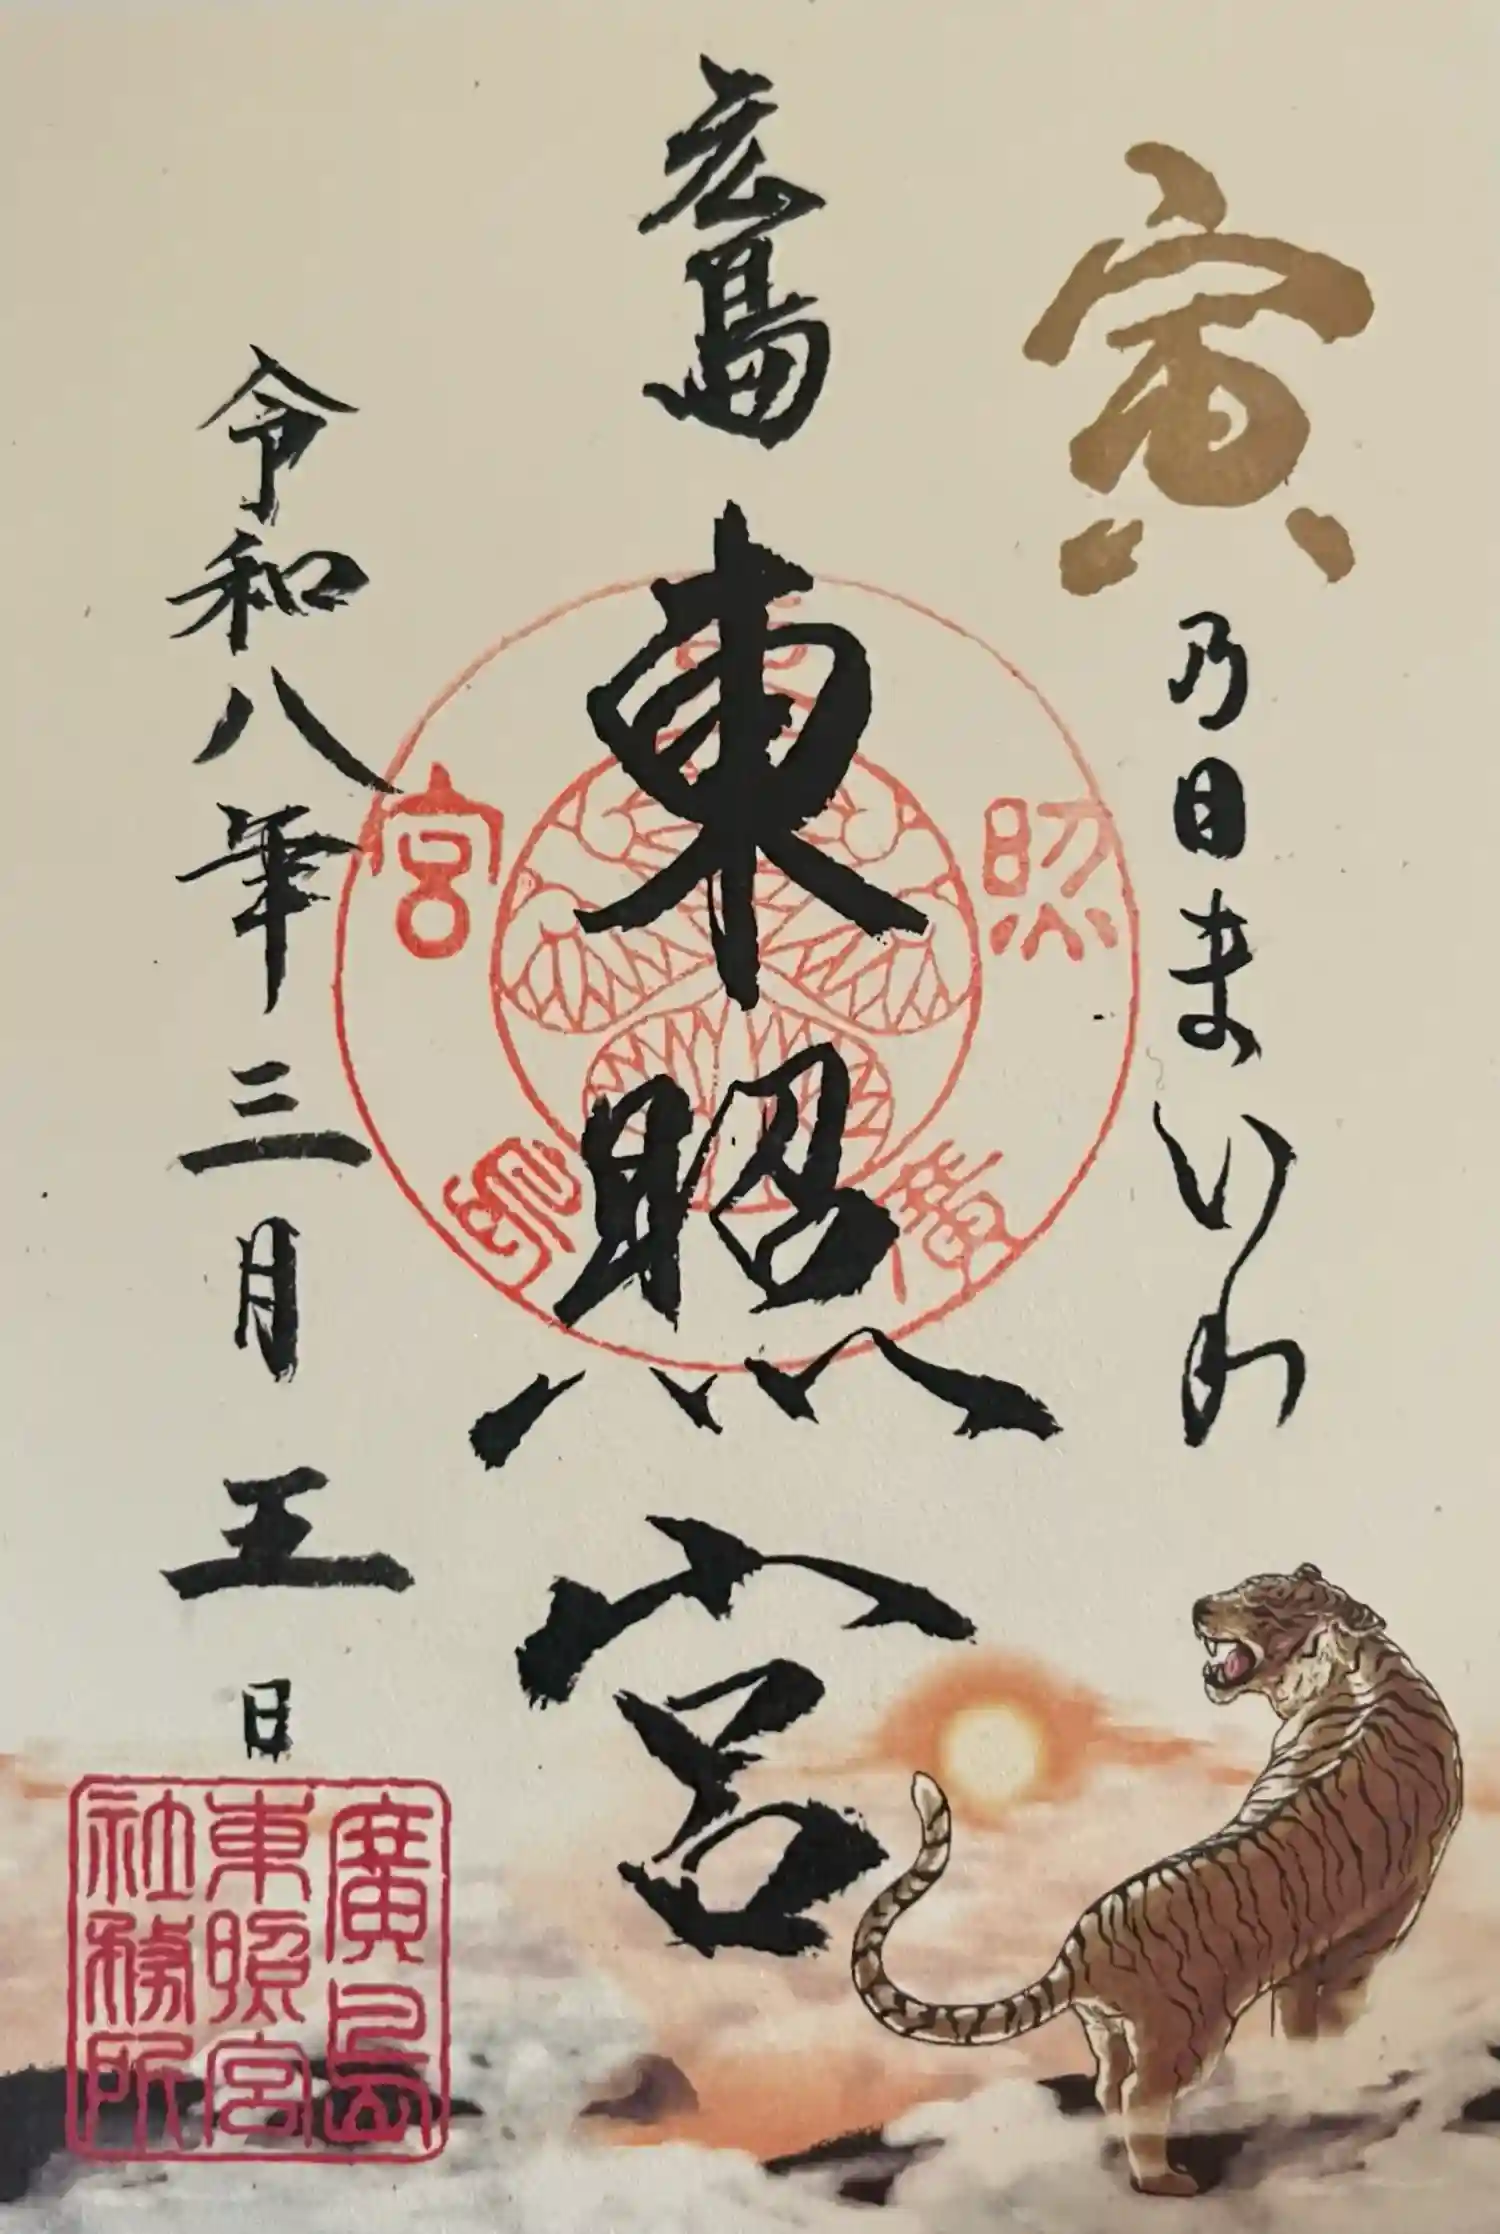 寅乃日まいり
広島
東照宮
令和八年三月五日
廣島東照宮
廣島
東照宮
社務所